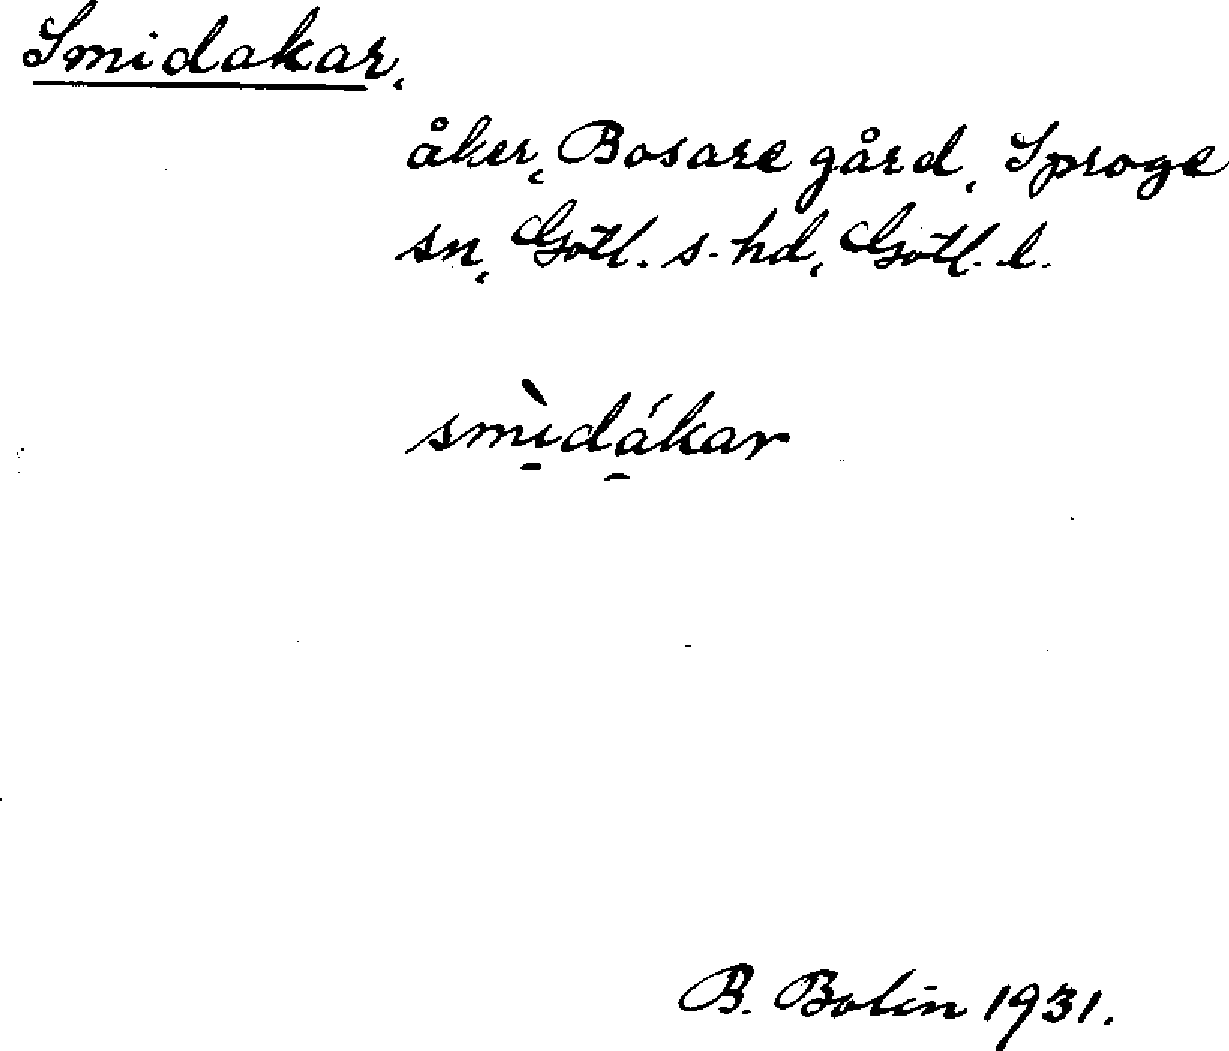 Smidakar,
åker, Bosare gård, Sproge
sn, Gotl. s. hd, Gotl. l.
smì̱dá̱kar
B. Bolin 1931.